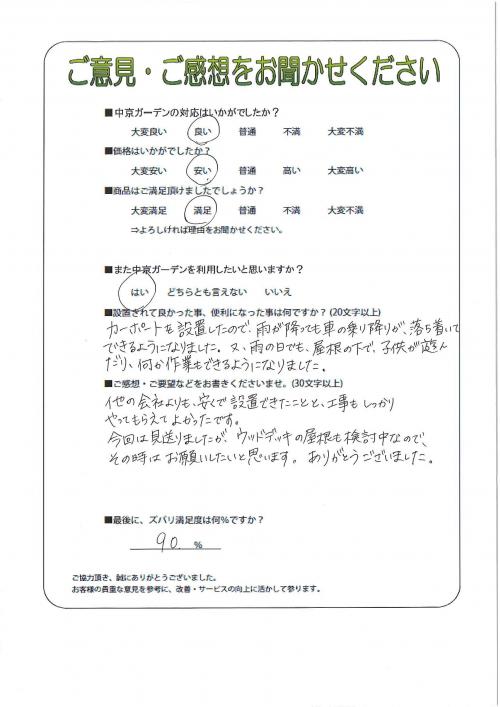 ご意見・ご感想をお聞かせください
■中京ガーデンの対応はいかがでしたか？
大変良い 良い 普通 不満 大変不満
■価格はいかがでしたか？
大変安い 安い 普通 高い 大変高い
■商品はご満足頂けましたでしょうか？
大変満足 満足 普通 不満 大変不満
⇒よろしければ理由をお聞かせください。
■また中京ガーデンを利用したいと思いますか？
はい どちらとも言えない いいえ
■設置されて良かった事、便利になった事は何ですか？(20文字以上)
カーポートを設置したので、雨が降っても車の乗り降りが、落ち着いて
できるようになりました。又、雨の日でも、屋根の下で、子供が遊ん
だり、何か作業もできるようになりました。
■ご感想・ご要望などをお書きくださいませ。(30文字以上)
他の会社よりも、安くで設置できたことと、工事もしっかり
やってもらえてよかったです。
今回は見送りましたが、ウッドデッキの屋根も検討中なので、
その時はお願いしたいと思います。ありがとうございました。
■最後に、ズバリ満足度は何％ですか？
90. %
ご協力頂き、誠にありがとうございました。
お客様の貴重な意見を参考に、改善・サービスの向上に活かして参ります。